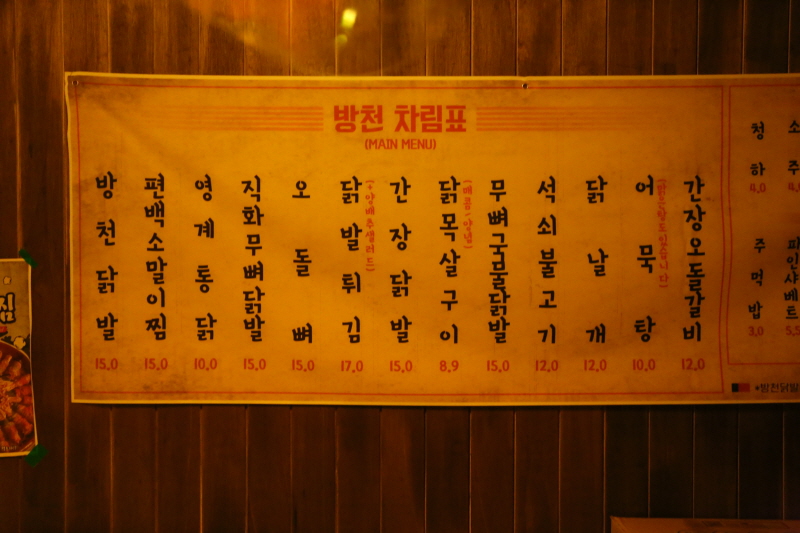 방천 차림표
(MAIN MENU)
방천닭발
15.0
편백소말이찜
15.0
영계통닭
10.0
직화무뼈닭발
15.0
오돌뼈
15.0
닭발튀김
(+양배추샐러드)
17.0
간장닭발
15.0
닭목살구이
(매콤/양념)
8.9
무뼈국물닭발
15.0
석쇠불고기
12.0
닭날개
12.0
어묵탕
10.0
간장오돌갈비
12.0
청하
4.0
소주
주먹밥
3.0
파인샤베트
찜